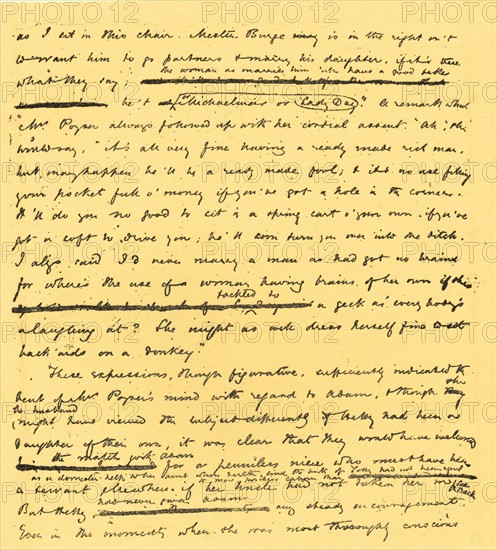 as I sit in this chair. Mester Burge is in the right on't
to want him to go partners & marry his daughter, if it's true
what they say;
the woman as marries him 'ull have a good take
be't Michaelmas or Lady Day," a remark which
Mrs Poyser always followed up with her cordial assent. "Ah," she
would say, "it's all very fine having a ready made rich man,
but mayhappen he'll be a ready made fool; & it's no use filling
your pocket full o' money if you've got a hole in the corner.
It'll do you no good to sit in a spring cart o' your own, if you've
got a soft to drive you; he'll soon turn you over into the ditch.
I allys said I'd never marry a man as had got no brains;
for where's the use of a woman having brains of her own if she's
tackled to a geck as everybody's
a laughing at? She might as well dress herself fine to sit
back'ards on a donkey."
These expressions, though figurative, sufficiently indicated the
bent of Mrs Poyser's mind with regard to Adam; & though she
& her husband
might have viewed the subject differently if Hetty had been a
daughter of their own, it was clear that they would have welcomed
the match with Adam
for a penniless niece. What could Hetty have been but
a servant elsewhere if her uncle had not taken her in &
But Hetty had never given Adam any steady encouragement.
Even in the moments when she was most thoroughly conscious
PHOTO12